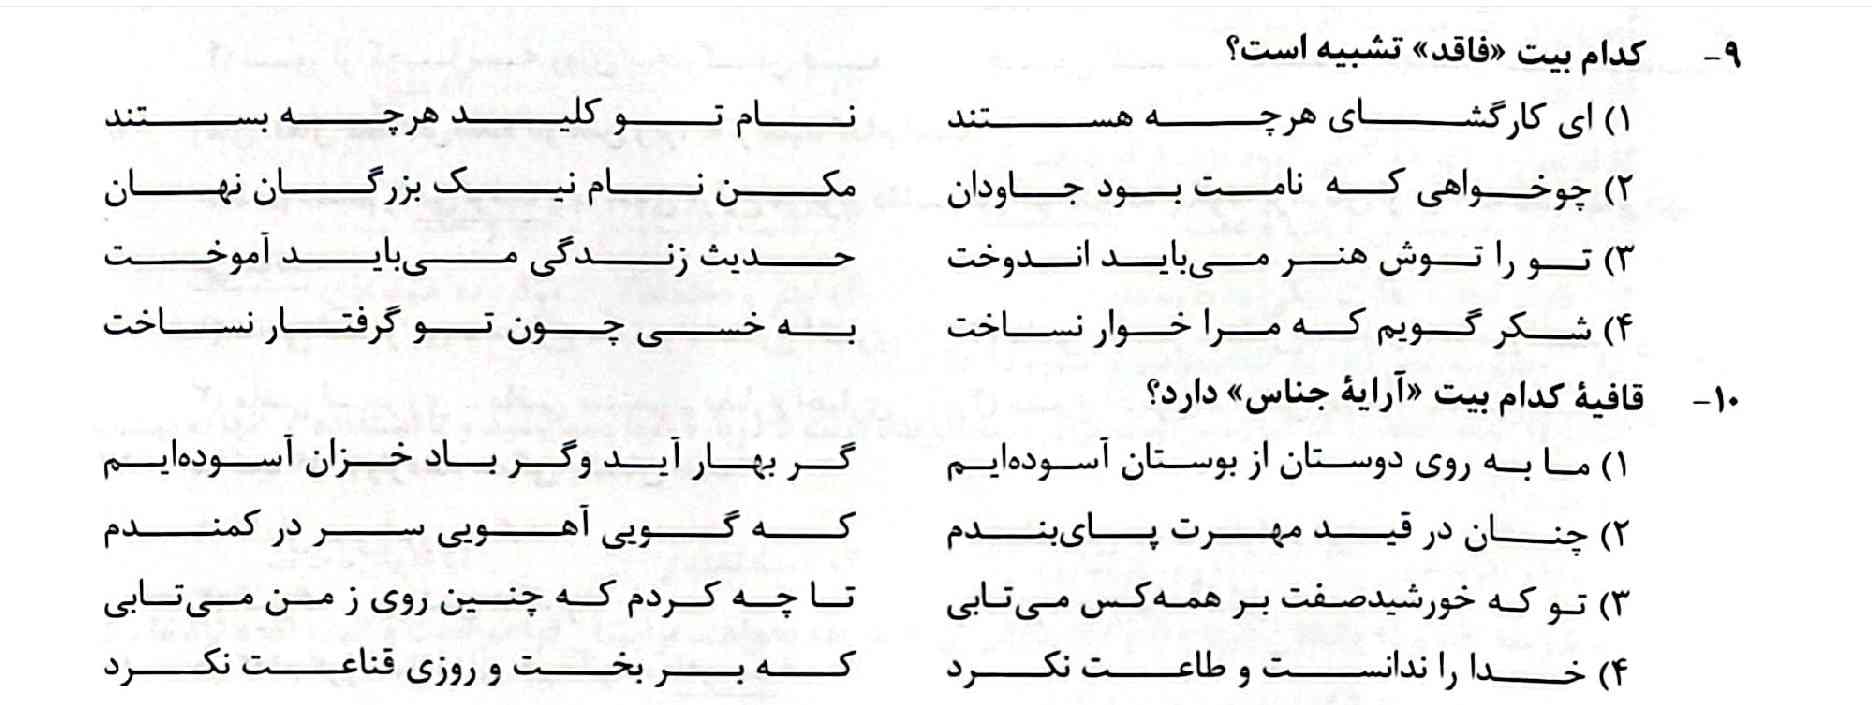 ۹- کدام بیت «فاقد» تشبیه است؟
۱) ای کارگشای هرچه هستند نام تو کلید هرچه بستند
۲) چوخواهی که نامت بود جاودان مکن نام نیک بزرگان نهان
۳) تو را توش هنر می‌باید اندوخت حدیث زندگی می‌باید آموخت
۴) شکر گویم که مرا خوار نساخت به خسی چون تو گرفتار نساخت
۱۰- قافیهٔ کدام بیت «آرایهٔ جناس» دارد؟
۱) ما به روی دوستان از بوستان آسوده‌ایم گر بهار آید وگر باد خزان آسوده‌ایم
۲) چنان در قید مهرت پای‌بندم که گویی آهویی سر در کمندم
۳) تو که خورشیدصفت بر همه‌کس می‌تابی تا چه کردم که چنین روی ز من می‌تابی
۴) خدا را ندانست و طاعت نکرد که بر بخت و روزی قناعت نکرد